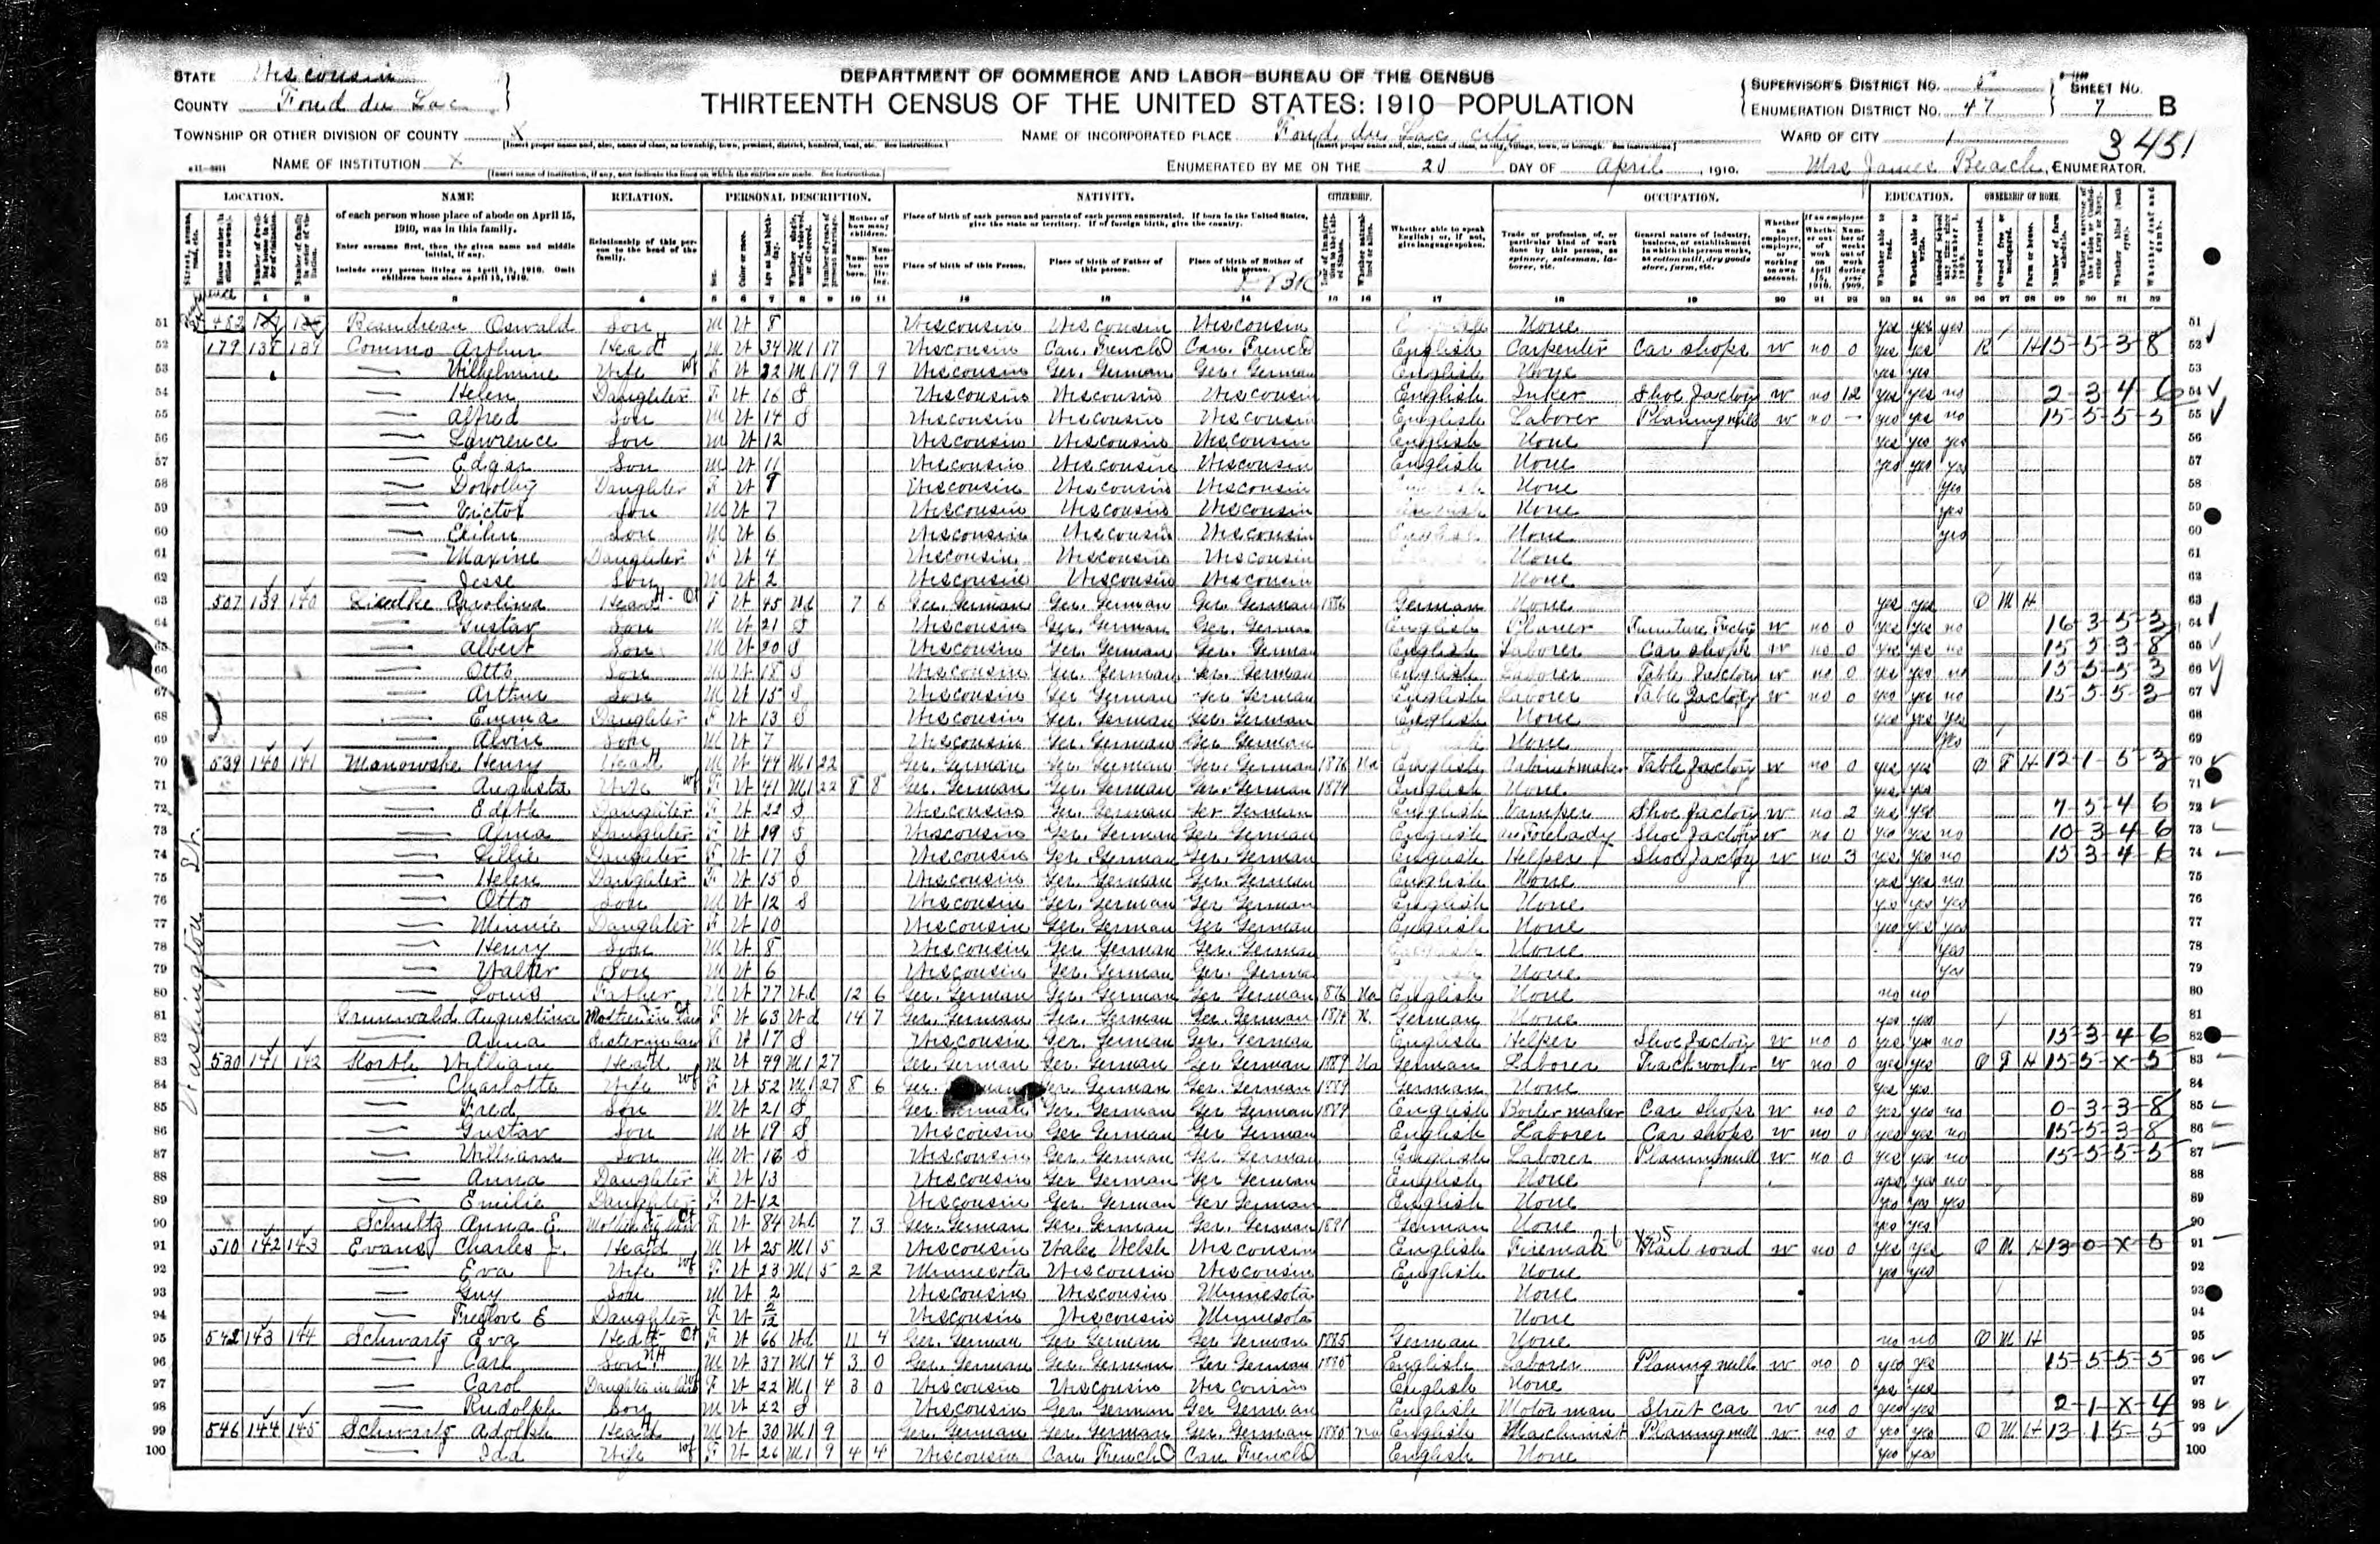 STATE Wisconsin
COUNTY Fond du Lac
DEPARTMENT OF COMMERCE AND LABOR—BUREAU OF THE CENSUS
THIRTEENTH CENSUS OF THE UNITED STATES: 1910—POPULATION
SUPERVISOR'S DISTRICT NO. 5
ENUMERATION DISTRICT NO. 47
SHEET NO. 7 B
TOWNSHIP OR OTHER DIVISION OF COUNTY X
NAME OF INCORPORATED PLACE Fond du Lac City
WARD OF CITY 1
3451
NAME OF INSTITUTION X
ENUMERATED BY ME ON THE 20 DAY OF April, 1910. Mrs James Beach, ENUMERATOR.
LOCATION. NAME RELATION. PERSONAL DESCRIPTION. NATIVITY. CITIZENSHIP. OCCUPATION. EDUCATION. OWNERSHIP OF HOME.
of each person whose place of abode on April 15, 1910, was in this family.
Enter surname first, then the given name and middle initial, if any.
Include every person living on April 15, 1910. Omit children born since April 15, 1910.
Relationship of this person to the head of the family.
Place of birth of each person and parents of each person enumerated. If born in the United States, give the state or territory. If of foreign birth, give the country.
Place of birth of this Person. Place of birth of Father of this person. Place of birth of Mother of this person.
Whether able to speak English; or, if not, give language spoken.
51 482 Oswald Son M W 8 Wisconsin Wisconsin Wisconsin None yes yes yes 51
52 179 138 139 Commo Arthur Head M W 34 M1 17 Wisconsin Can. French Can. French English Carpenter Car shops w no 0 yes yes R H 15-5-3-8 52
53 Wilhelmine Wife F W 32 M1 17 9 9 Wisconsin Ger. German Ger. German English None yes yes 53
54 Helen Daughter F W 16 S Wisconsin Wisconsin Wisconsin English Inker Shoe Factory w no 12 yes yes no 2-3-4-6 54
55 Alfred Son M W 14 S Wisconsin Wisconsin Wisconsin English Laborer Planing mill w no — yes yes no 15-5-5-5 55
56 Lawrence Son M W 12 Wisconsin Wisconsin Wisconsin English None yes yes yes 56
57 Edgar Son M W 11 Wisconsin Wisconsin Wisconsin English None yes yes yes 57
58 Dorothy Daughter F W 8 Wisconsin Wisconsin Wisconsin None yes 58
59 Victor Son M W 7 Wisconsin Wisconsin Wisconsin None yes 59
60 Son M W 6 Wisconsin Wisconsin Wisconsin None yes 60
61 Maxine Daughter F W 4 Wisconsin Wisconsin Wisconsin None 61
62 Jesse Son M W 2 Wisconsin Wisconsin Wisconsin None 62
63 507 139 140 Liedke Carolina Head F W 45 Wd 7 6 Ger. German Ger. German Ger. German 1886 German None yes yes O M H 63
64 Gustav Son M W 21 S Wisconsin Ger. German Ger. German English Planer Furniture Factory w no 0 yes yes no 16-3-5-3 64
65 Albert Son M W 20 S Wisconsin Ger. German Ger. German English Laborer Car shops w no 0 yes yes no 15-5-3-8 65
66 Otto Son M W 18 S Wisconsin Ger. German Ger. German English Laborer Table Factory w no 0 yes yes no 15-5-5-3 66
67 Arthur Son M W 15 S Wisconsin Ger German Ger German English Laborer Table Factory w no 0 yes yes no 15-5-5-3 67
68 Emma Daughter F W 13 S Wisconsin Ger. German Ger. German English None yes yes yes 68
69 Alvin Son M W 7 Wisconsin Ger. German Ger German None yes 69
70 539 140 141 Manowske Henry Head M W 44 M1 22 Ger. German Ger. German Ger. German 1876 Na English Cabinetmaker Table Factory w no 0 yes yes O F H 12-1-5-3 70
71 Augusta Wife F W 41 M1 22 8 8 Ger. German Ger. German Ger. German 1874 English None yes yes 71
72 Edith Daughter F W 22 S Wisconsin Ger. German Ger German English Vamper Shoe Factory w no 2 yes yes 7-5-4-6 72
73 Alma Daughter F W 19 S Wisconsin Ger. German Ger. German English Forelady Shoe Factory w no 0 yes yes no 10-3-4-6 73
74 Lillie Daughter F W 17 S Wisconsin Ger. German Ger. German English Helper Shoe Factory w no 3 yes yes no 15-3-4-6 74
75 Helen Daughter F W 15 S Wisconsin Ger. German Ger. German English None yes yes no 75
76 Otto Son M W 12 S Wisconsin Ger. German Ger German English None yes yes yes 76
77 Minnie Daughter F W 10 Wisconsin Ger German Ger German English None yes yes yes 77
78 Henry Son M W 8 Wisconsin Ger German Ger. German None yes 78
79 Walter Son M W 6 Wisconsin Ger. German Ger. German None yes 79
80 Louis Father M W 77 Wd 12 6 Ger. German Ger. German Ger German 1876 Na English None no no 80
81 Grunwald Augustina Mother in law F W 63 Wd 14 7 Ger. German Ger. German Ger. German 1874 German None yes yes 81
82 Anna Sister in law F W 17 S Wisconsin Ger. German Ger. German English Helper Shoe Factory w no 0 yes yes no 15-3-4-6 82
83 530 141 142 Korth William Head M W 49 M1 27 Ger. German Ger. German Ger German 1889 Na German Laborer Track worker w no 0 yes yes O F H 15-5-X-5 83
84 Charlotte Wife F W 52 M1 27 8 6 Ger. Ger. German Ger. German 1889 German None yes yes 84
85 Fred Son M W 21 S Ger. German Ger. German Ger German 1889 English Boiler maker Car shops w no 0 yes yes no 0-3-3-8 85
86 Gustav Son M W 19 S Wisconsin Ger German Ger German English Laborer Car shops w no 0 yes yes no 15-5-3-8 86
87 William Son M W 16 S Wisconsin Ger. German Ger. German English Laborer Planing mill w no 0 yes yes no 15-5-5-5 87
88 Anna Daughter F W 13 Wisconsin Ger German Ger German English None yes yes no 88
89 Emilie Daughter F W 12 Wisconsin Ger. German Ger German English None yes yes yes 89
90 Schultz Anna E. Mother in law F W 84 Wd 7 3 Ger. German Ger. German Ger. German 1891 German None yes yes 90
91 510 142 143 Evans Charles J. Head M W 25 M1 5 Wisconsin Wales Welsh Wisconsin English Fireman Rail road w no 0 yes yes O M H 91
92 Eva Wife F W 23 M1 5 2 2 Minnesota Wisconsin Wisconsin English None yes yes 92
93 Guy Son M W 2 Wisconsin Wisconsin Minnesota None 93
94 Freelove E Daughter F W 2/12 Wisconsin Wisconsin Minnesota None 94
95 542 143 144 Schwartz Eva Head F W 66 Wd 11 4 Ger. German Ger German Ger German 1885 German None no no O M H 95
96 Carl Son M W 37 M1 4 3 0 Ger. German Ger. German Ger German English Laborer Planing mill w no 0 yes yes 15-5-5-5 96
97 Carol Daughter in law F W 22 M1 4 3 0 Wisconsin Wisconsin Wisconsin English None yes yes 97
98 Rudolph Son M W 22 S Wisconsin Ger German Ger German English Motorman Street car w no 0 yes yes 2-1-X-4 98
99 546 144 145 Schwartz Adolph Head M W 30 M1 9 Ger. German Ger. German Ger. German Na English Machinist Planing mill w no 0 yes yes O M H 13-1-5-5 99
100 Ida Wife F W 26 M1 9 4 4 Wisconsin Can. French Can French English None yes yes 100
Washington St.